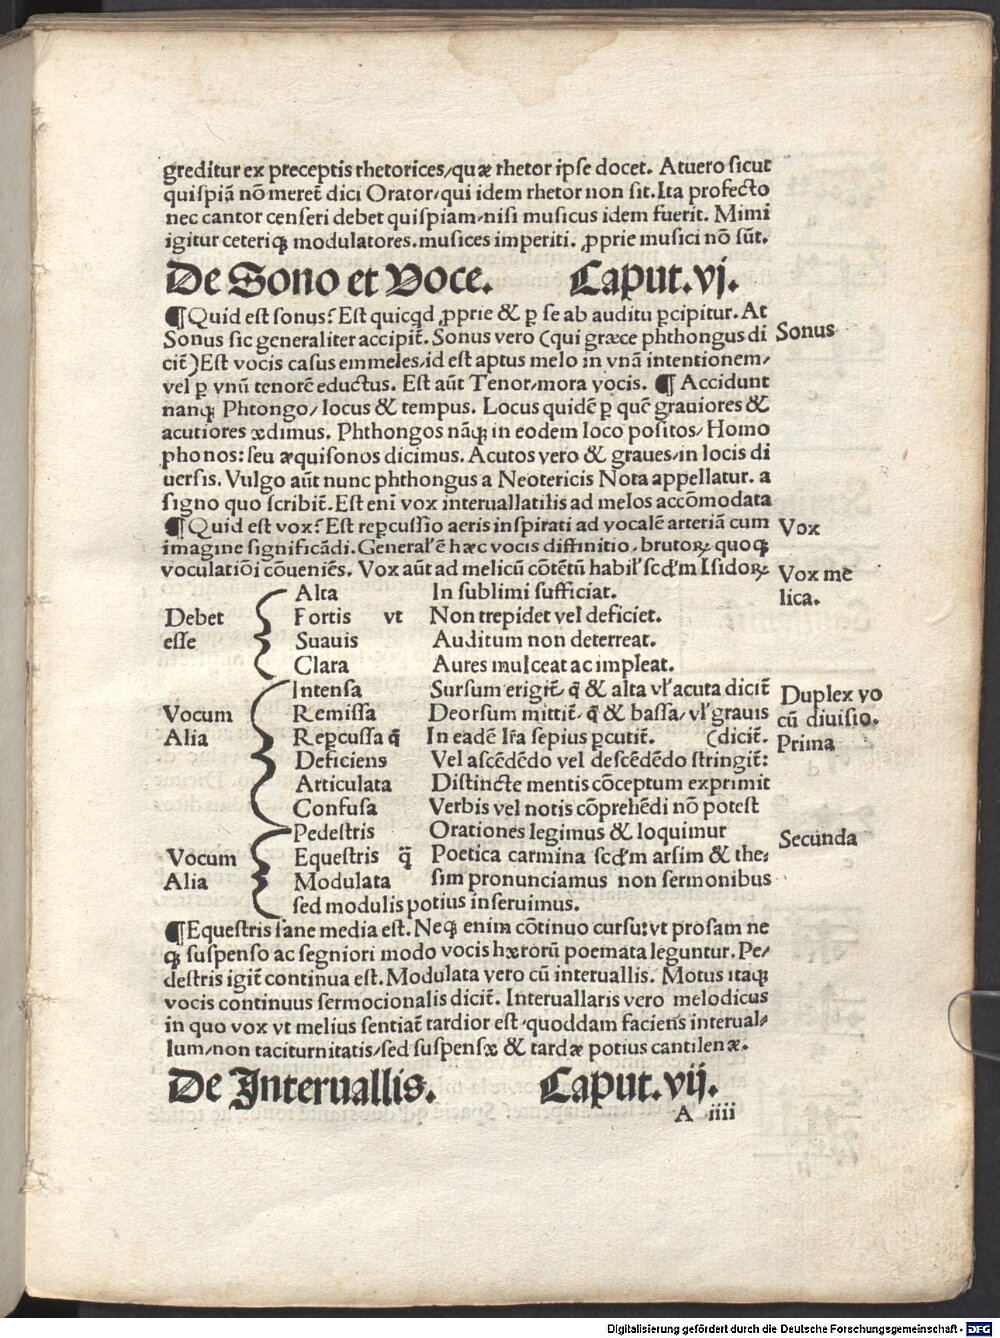 greditur ex preceptis rhetorices/quæ rhetor ipse docet. Atuero sicut
quispiã nõ meret̃ dici Orator/qui idem rhetor non sit. Ita profecto
nec cantor censeri debet quispiam/nisi musicus idem fuerit. Mimi
igitur ceteriqꝫ modulatores. musices imperiti. ꝓprie musici nõ sũt.
De Sono et Voce. Caput. vj.
¶ Quid est sonus? Est quicqd̃ ꝓprie & ꝑ se ab auditu ꝑcipitur. At
Sonus sic generaliter accipit̃. Sonus vero (qui græce phthongus di
cit̃) Est vocis casus emmeles/id est aptus melo in vnã intentionem/
vel ꝑ vnũ tenorẽ eductus. Est aũt Tenor/mora vocis. ¶ Accidunt
nanqꝫ Phtongo/locus & tempus. Locus quidẽ ꝑ quẽ grauiores &
acutiores ædimus. Phthongos nãqꝫ in eodem loco positos/Homo
phonos: seu æquisonos dicimus. Acutos vero & graues/in locis di
uersis. Vulgo aũt nunc phthongus a Neotericis Nota appellatur. a
signo quo scribit̃. Est enĩ vox interuallatilis ad melos accõmodata
Sonus
¶ Quid est vox? Est reꝑcussio aeris inspirati ad vocalẽ arteriã cum
imagine significãdi. General̃ ẽ hæc vocis diffinitio. brutoꝝ quoqꝫ
voculatiõi cõueniẽs. Vox aũt ad melicũ cõtẽtũ habil̃ scd̃m Isidoꝝ
Vox
Vox me
lica.
Debet
esse
Alta In sublimi sufficiat.
Fortis vt Non trepidet vel deficiet.
Suauis Auditum non deterreat.
Clara Aures mulceat ac impleat.
Vocum
Alia
Intensa Sursum erigit̃ q̃ & alta vl̃ acuta dicit̃
Remissa Deorsum mittit̃. q̃ & bassa/vl̃ grauis
Reꝑcussa q̃ In eadẽ lr̃a sepius ꝑcutit̃. (dicit̃.
Deficiens Vel ascẽdẽdo vel descẽdẽdo stringit̃:
Articulata Distincte mentis cõceptum exprimit
Confusa Verbis vel notis cõprehẽdi nõ potest
Duplex vo
cũ diuisio.
Prima
Vocum
Alia
Pedestris Orationes legimus & loquimur
Equestris q̃ Poetica carmina scd̃m arsim & the:
Modulata sim pronunciamus non sermonibus
sed modulis potius inseruimus.
Secunda
¶ Equestris sane media est. Neqꝫ enim cõtinuo cursu: vt prosam ne
qꝫ suspenso ac segniori modo vocis hærorũ poemata leguntur. Pe/
destris igit̃ continua est. Modulata vero cũ interuallis. Motus itaqꝫ
vocis continuus sermocionalis dicit̃. Interuallaris vero melodicus
in quo vox vt melius sentiat̃ tardior est/quoddam faciens interual/
lum/non taciturnitatis/sed suspensæ & tardæ potius cantilenæ.
De Interuallis. Caput. vij.
A iiij
Digitalisierung gefördert durch die Deutsche Forschungsgemeinschaft - DFG